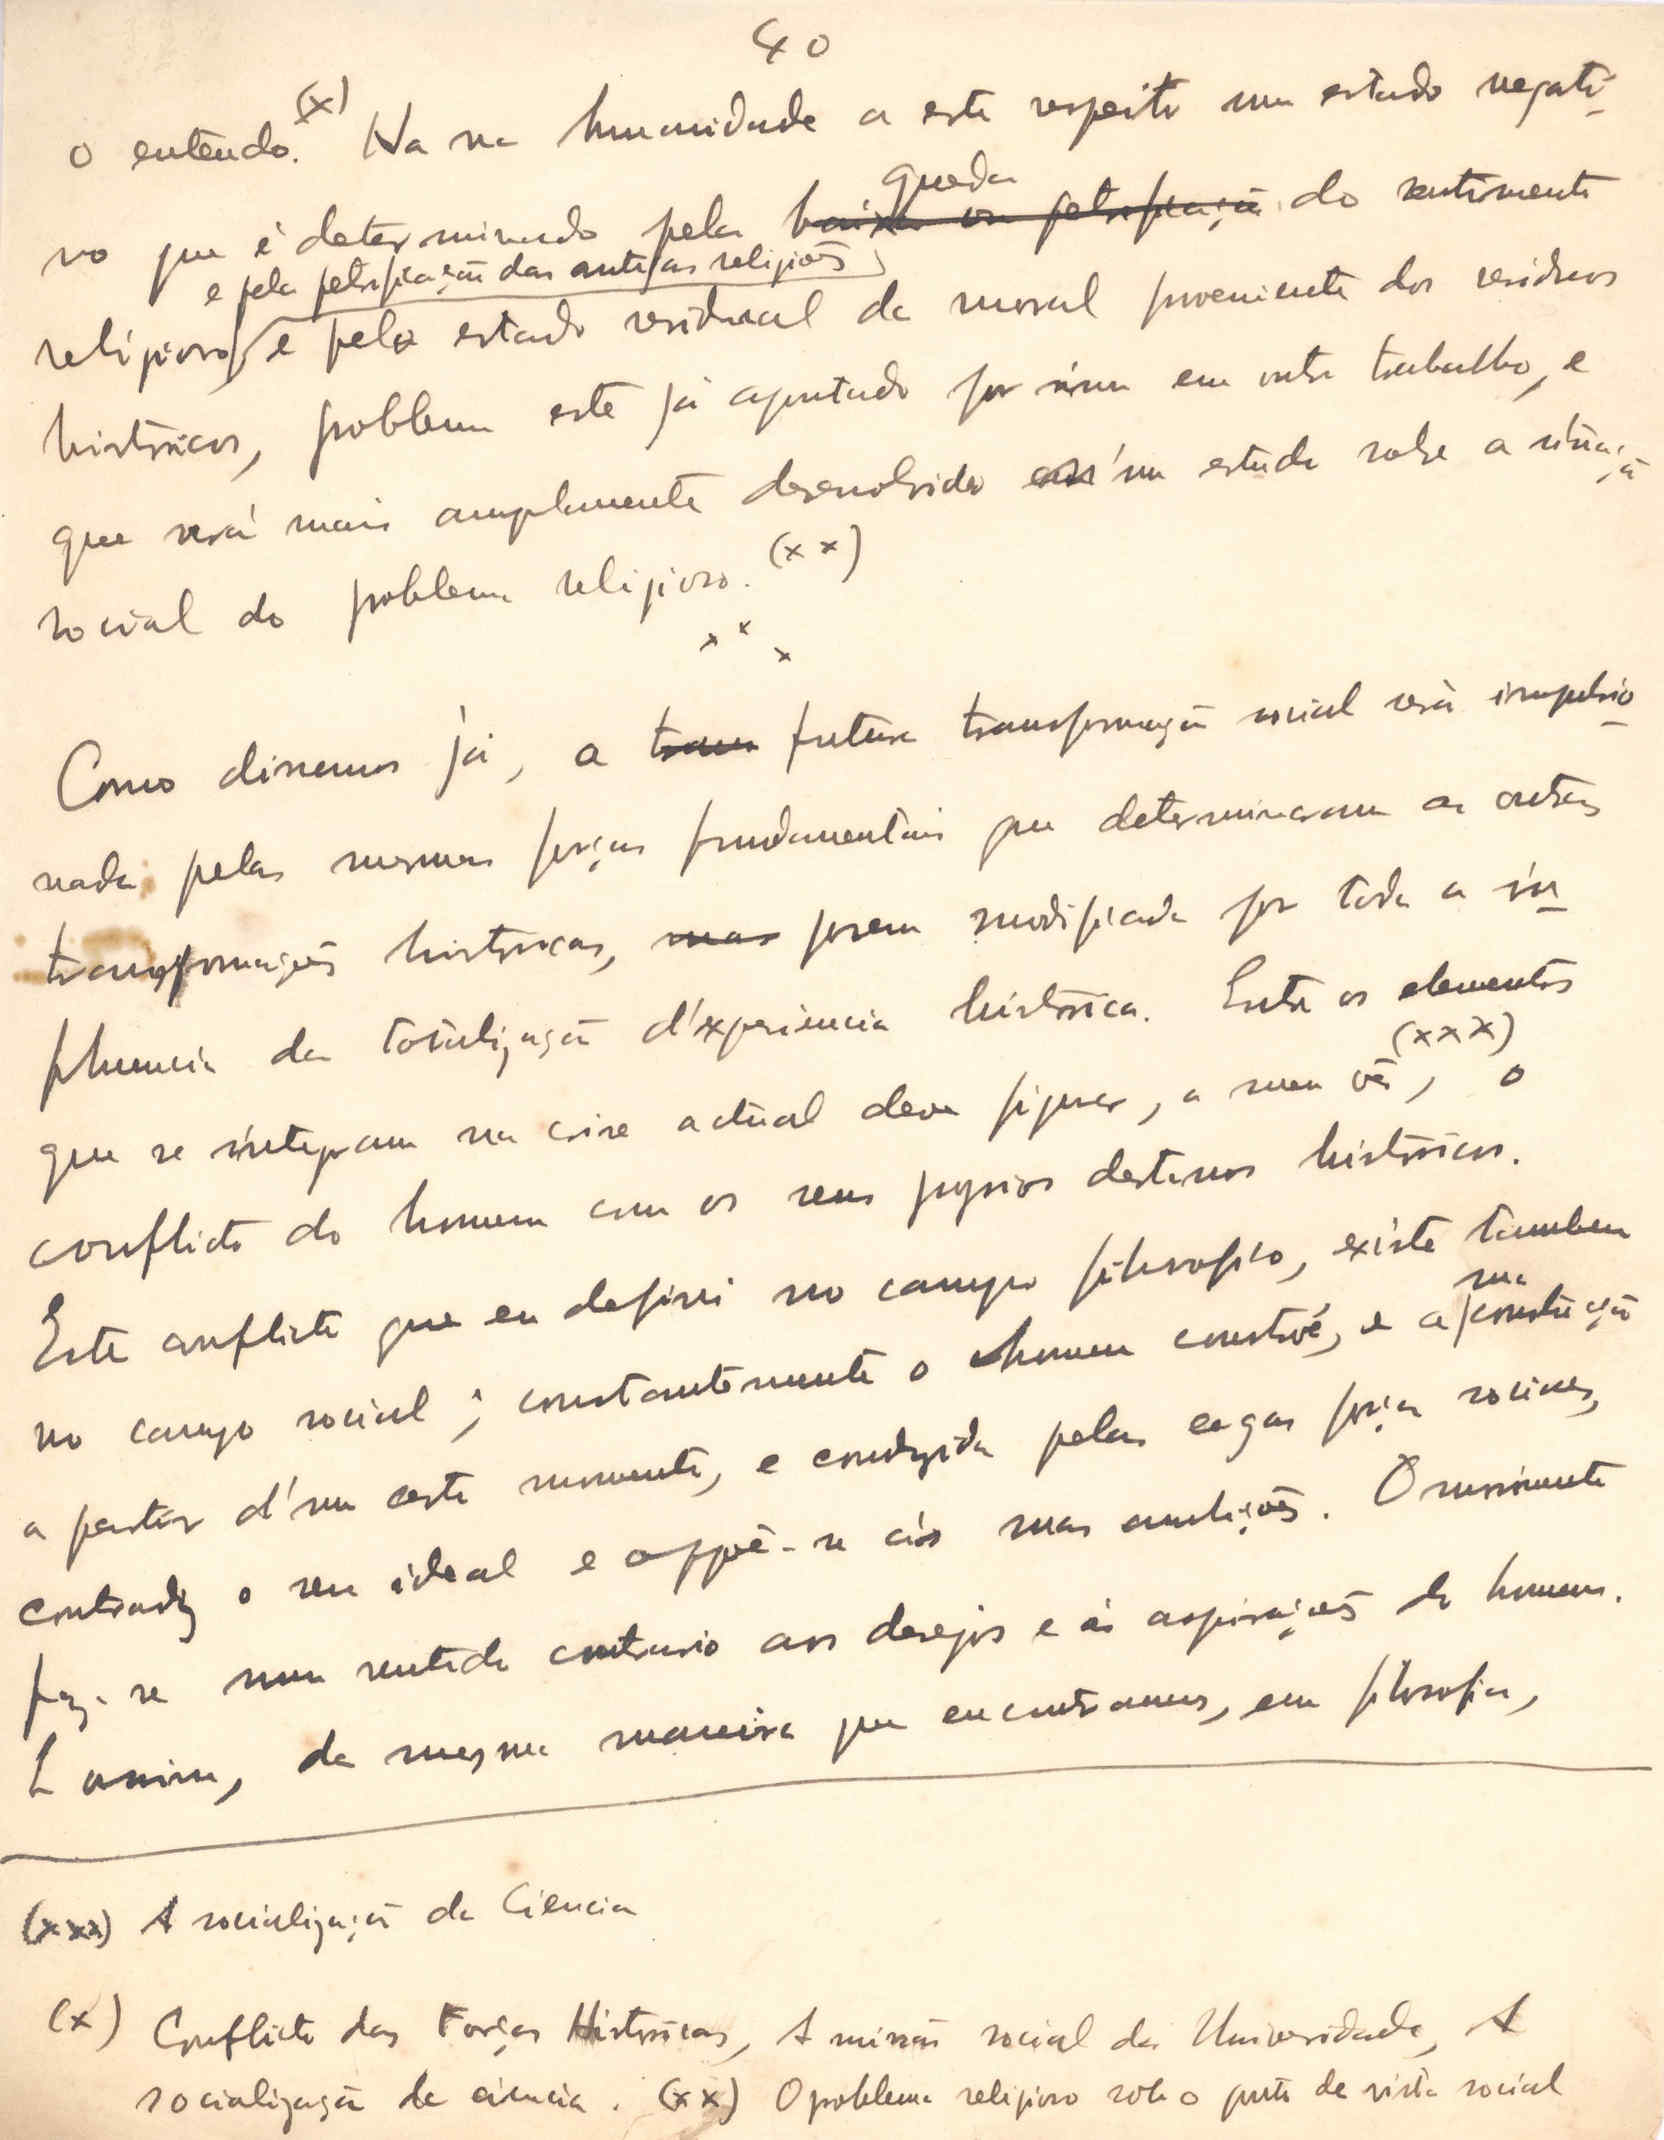 40
o entendo.(x) Ha na humanidade a este respeito um estado negati-
queda
vo que é determinado pela baixa ou petrificação do sentimento
e pela petrificação das antigas religiões
religioso, e pelo estado residual da moral proveniente dos residuos
historicos, problema este já apontado por mim em outro trabalho, e
que será mais amplamente desenvolvido n'um estudo sobre a situação
social do problema religioso. (xx)
x x x
Como dissemos já, a trans futura transformação social será impulsio-
nada pelas mesmas forças fundamentais que determinaram as outras
transformações historicas, mas porem modificada por toda a in-
fluencia da totalização d'experiencia historica. Entre os elementos
(xxx)
que se integram na crise actual deve figurar, a meu vêr, o
conflicto do homem com os seus proprios destinos historicos.
Este conflicto que eu defini no campo filosofico, existe tambem
sua
no campo social; constantemente o homem constroé, e a construcção
a partir d'um certo momento, e conduzida pelas cegas força sociaes,
contradiz o seu ideal e oppoê-se ás suas ambições. O movimento
faz-se num sentido contrario aos desejos e ás aspirações do homem.
E assim, da mesma maneira que encontramos, em filosofia,
(xxx) A socialização da Ciencia
(x) Conflicto das Forças Historicas, A missão social da Universidade, A
socialização da ciencia. (xx) O problema religioso sob o ponto de vista social